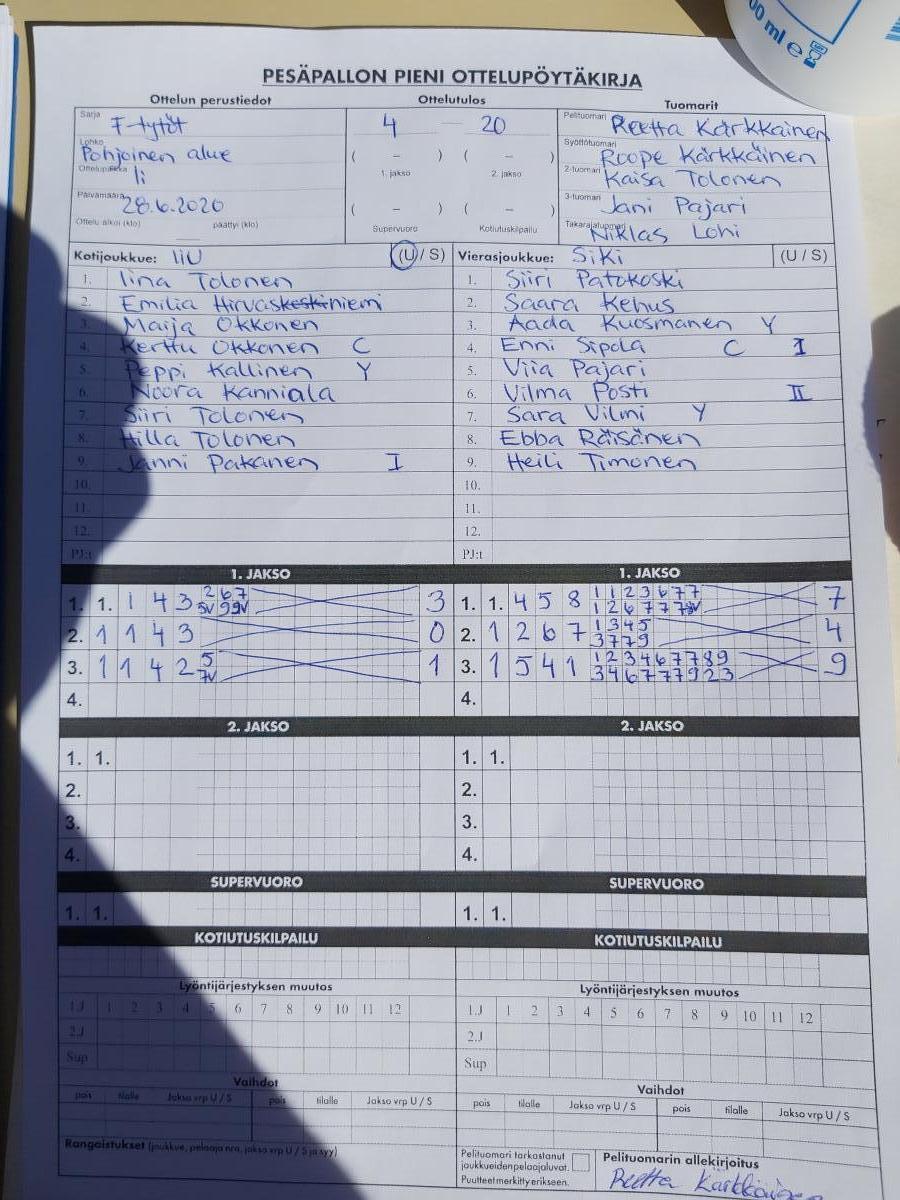 00 ml e
PESÄPALLON PIENI OTTELUPÖYTÄKIRJA
Ottelun perustiedot Ottelutulos Tuomarit
Sarja F-tytöt 4 — 20 Pelituomari Reetta Kärkkäinen
Lohko Pohjoinen alue ( – ) ( – ) Syöttötuomari Roope Kärkkäinen
Ottelupaikka Ii 1. jakso 2. jakso 2-tuomari Kaisa Tolonen
Päivämäärä 28.6.2020 ( – ) ( – ) 3-tuomari Jani Pajari
Ottelu alkoi (klo) päättyi (klo) Supervuoro Kotiutuskilpailu Takarajatuomari Niklas Lohi
Kotijoukkue: IiU (U / S) Vierasjoukkue: SiKi (U / S)
1. Iina Tolonen 1. Siiri Patokoski
2. Emilia Hirvaskeskiniemi 2. Saara Kehus
3. Maija Okkonen 3. Aada Kuosmanen Y
4. Kerttu Okkonen C 4. Enni Sipola C I
5. Peppi Kallinen Y 5. Viia Pajari
6. Noora Kanniala 6. Vilma Posti II
7. Siiri Tolonen 7. Sara Vilmi Y
8. Hilla Tolonen 8. Ebba Räisänen
9. Janni Pakanen I 9. Heili Timonen
10. 10.
11. 11.
12. 12.
PJ:t PJ:t
1. JAKSO 1. JAKSO
1. 1. 1 4 3 2 6 7 3 1. 1. 4 5 8 1 1 2 3 6 7 7 7
5V 9 9V 1 2 6 7 7 7
2. 1 1 4 3 0 2. 1 2 6 7 1 3 4 5 4
3 7 7 9
3. 1 1 4 2 5 1 3. 1 5 4 1 1 2 3 4 6 7 7 8 9 9
7V 3 4 6 7 7 7 9 2 3
4. 4.
2. JAKSO 2. JAKSO
1. 1. 1. 1.
2. 2.
3. 3.
4. 4.
SUPERVUORO SUPERVUORO
1. 1. 1. 1.
KOTIUTUSKILPAILU KOTIUTUSKILPAILU
Lyöntijärjestyksen muutos Lyöntijärjestyksen muutos
1.J 1 2 3 4 5 6 7 8 9 10 11 12 1.J 1 2 3 4 5 6 7 8 9 10 11 12
2.J 2.J
Sup Sup
Vaihdot Vaihdot
pois tilalle Jakso vrp U / S pois tilalle Jakso vrp U / S pois tilalle Jakso vrp U / S pois tilalle Jakso vrp U / S
Rangaistukset (joukkue, pelaaja nro, jakso vrp U / S ja syy) Pelituomari tarkastanut Pelituomarin allekirjoitus
joukkueidenpelaajaluvat.
Puutteet merkitty erikseen. Reetta Kärkkäinen